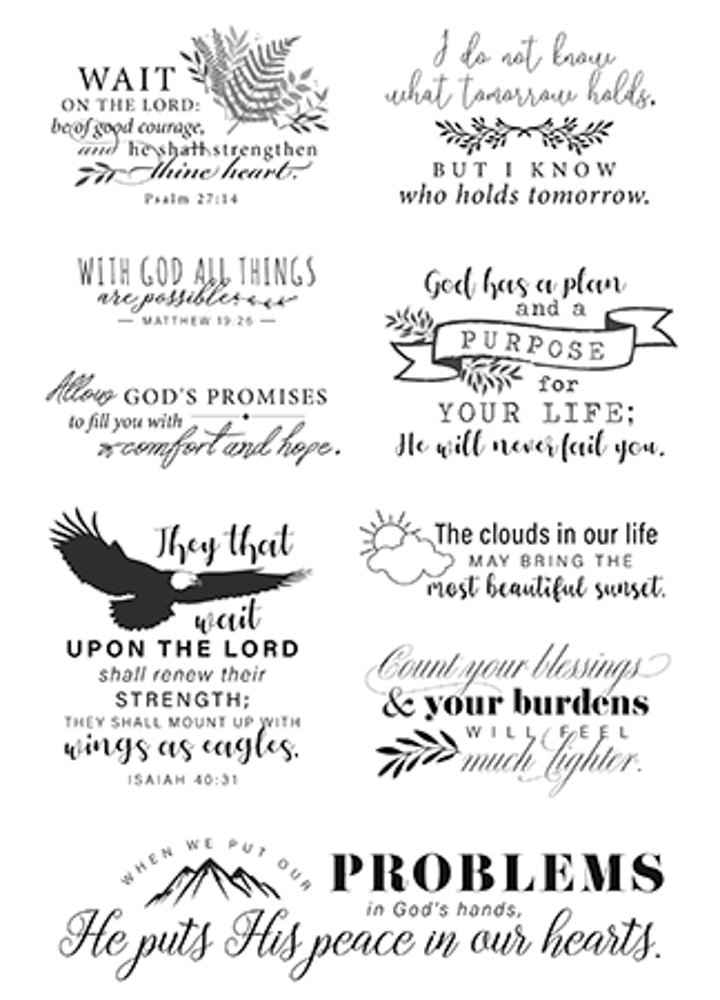 WAIT
ON THE LORD:
be of good courage,
and he shall strengthen
thine heart.
Psalm 27:14
I do not know
what tomorrow holds.
BUT I KNOW
who holds tomorrow.
WITH GOD ALL THINGS
are possible
— MATTHEW 19:26 —
God has a plan
and a
PURPOSE
for
YOUR LIFE;
He will never fail you.
Allow GOD'S PROMISES
to fill you with
comfort and hope.
They that
wait
UPON THE LORD
shall renew their
STRENGTH;
THEY SHALL MOUNT UP WITH
wings as eagles.
ISAIAH 40:31
The clouds in our life
MAY BRING THE
most beautiful sunset.
Count your blessings
& your burdens
WILL FEEL
much lighter.
WHEN WE PUT OUR
PROBLEMS
in God's hands,
He puts His peace in our hearts.